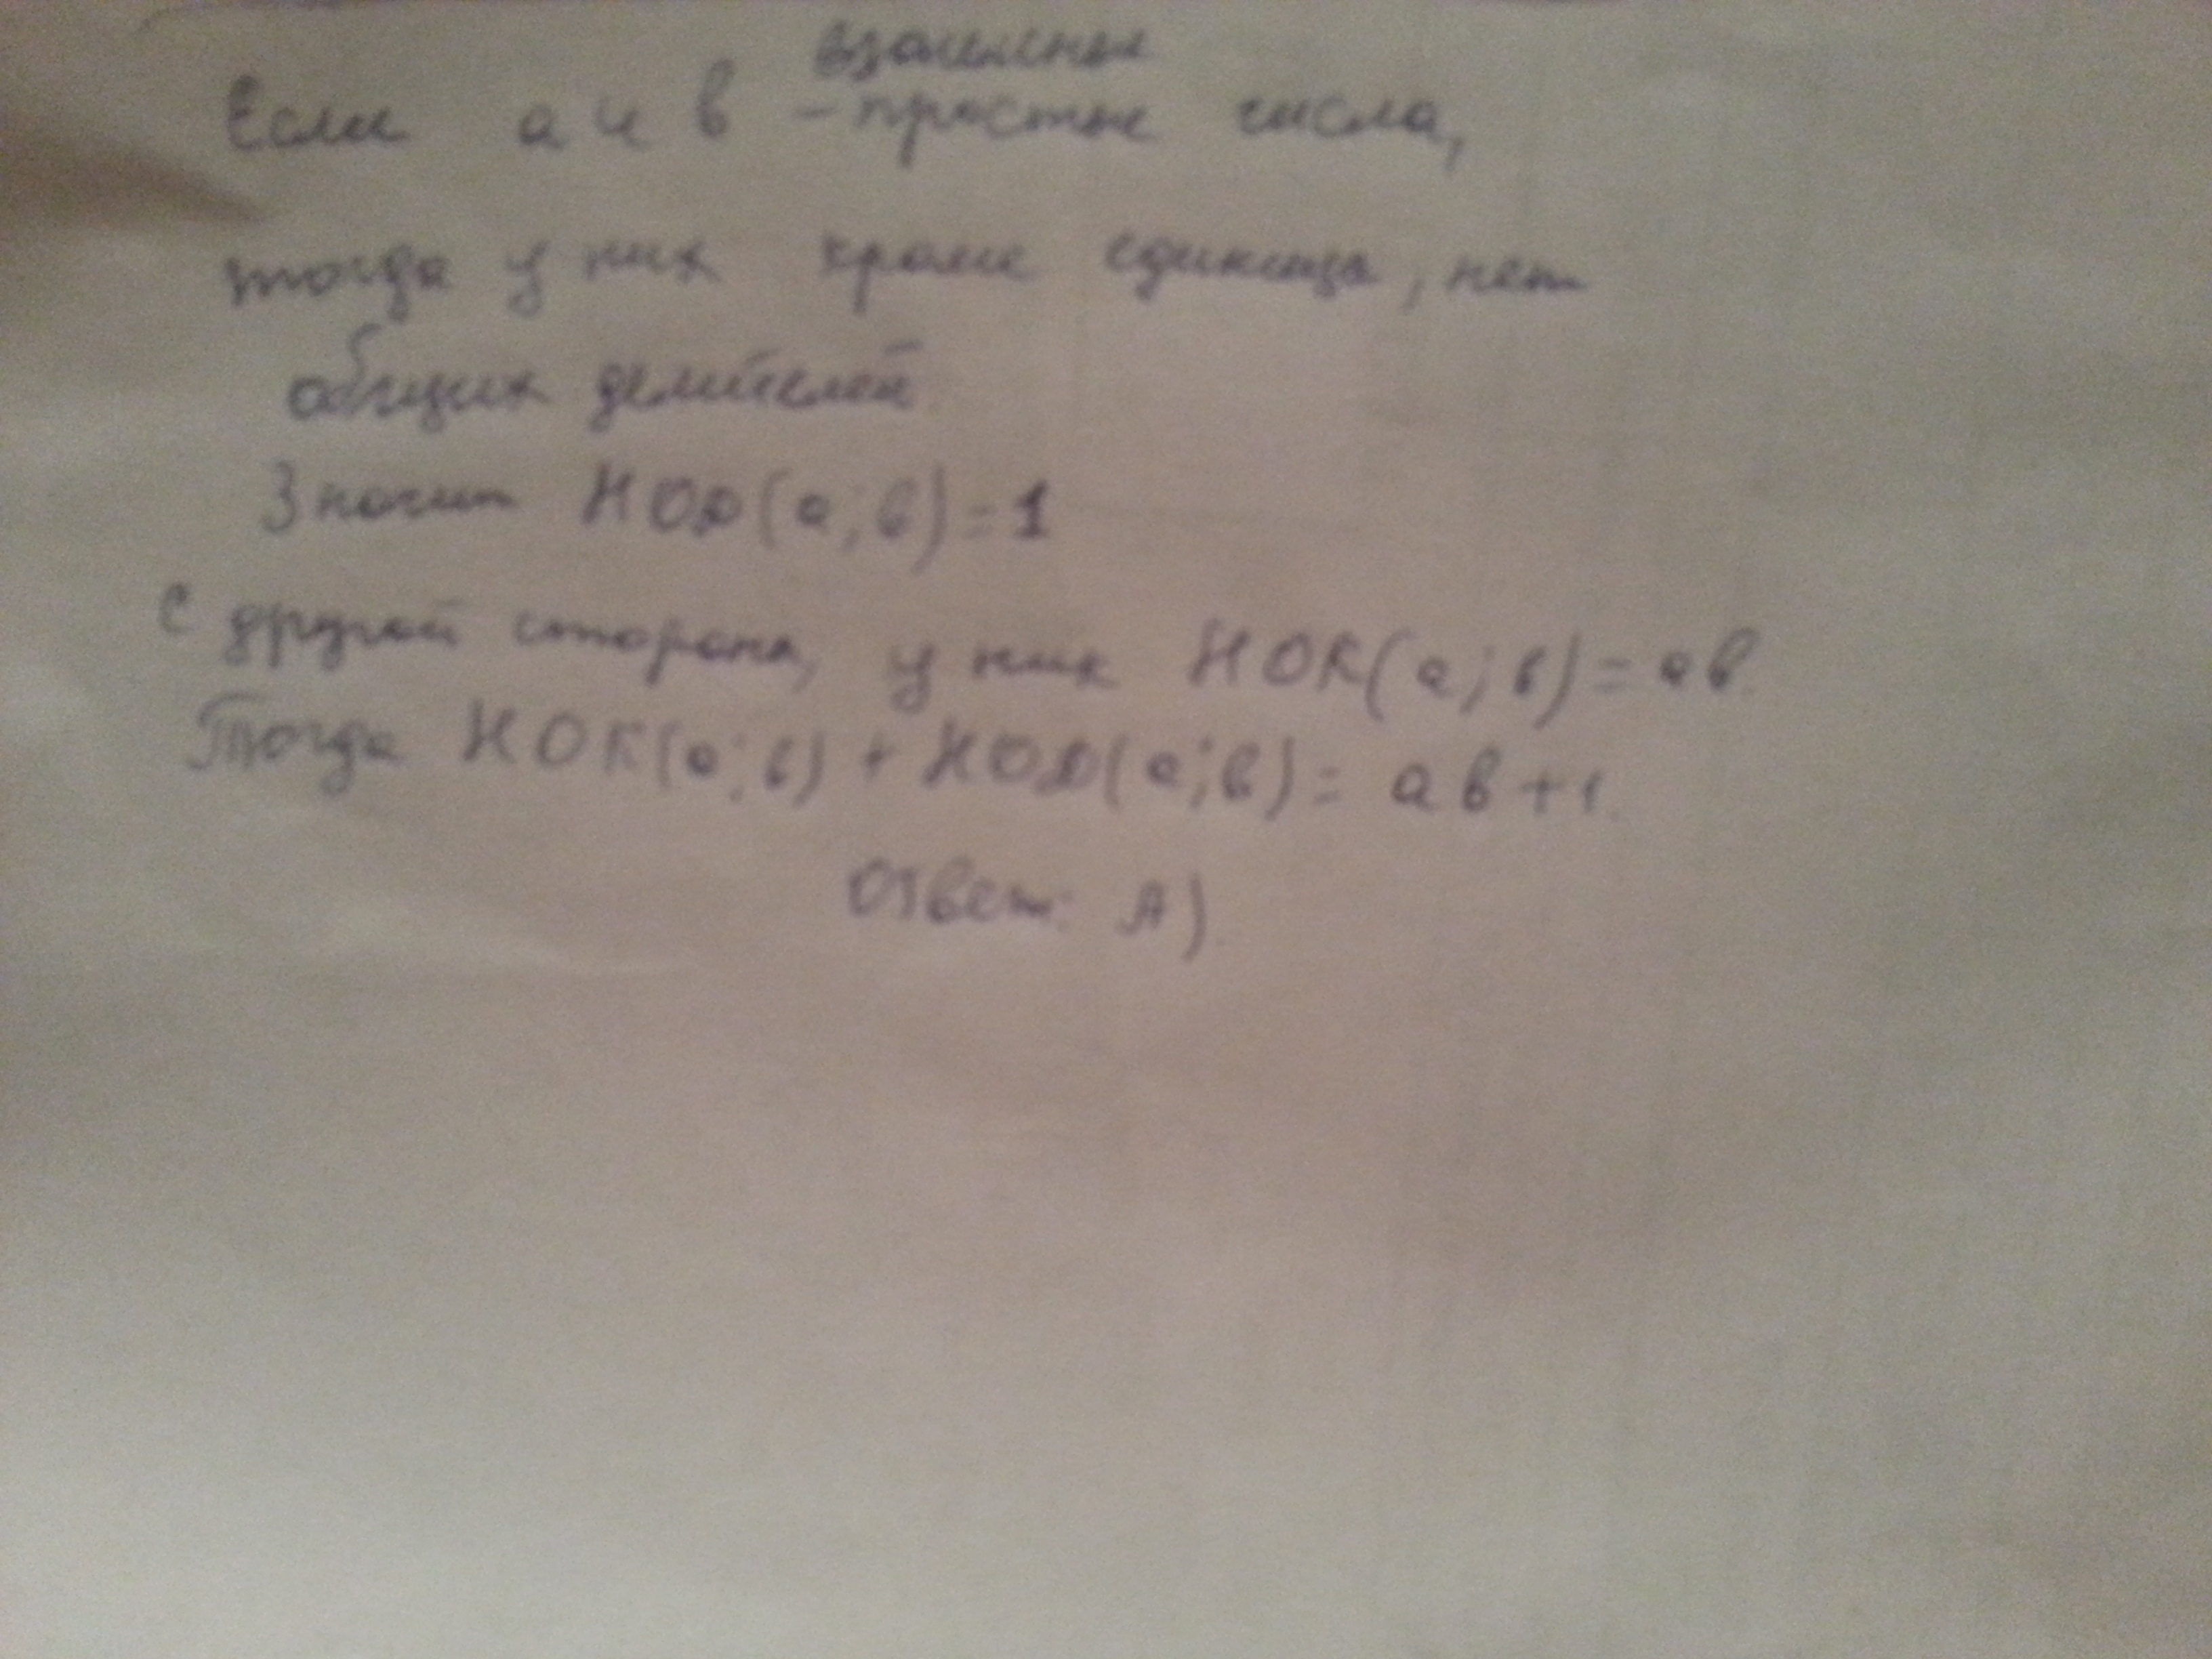 взаимные
Если а и в – простые числа,
тогда у них кроме единица, нет
общих делителей
Значит НОД(а;в)=1
С другой сторона, у них НОК(а;в)=ав.
Тогда НОК(а;в)+НОД(а;в)=ав+1.
Ответ: А).